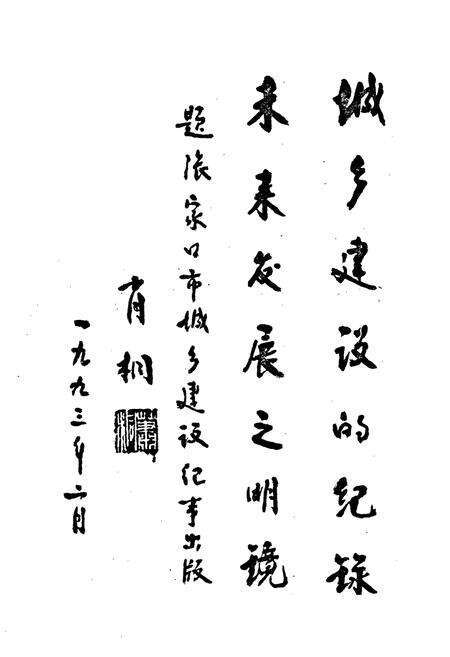 城乡建设的纪录
未来发展之明镜
题张家口市城乡建设纪事出版
肖桐
一九九三年二月